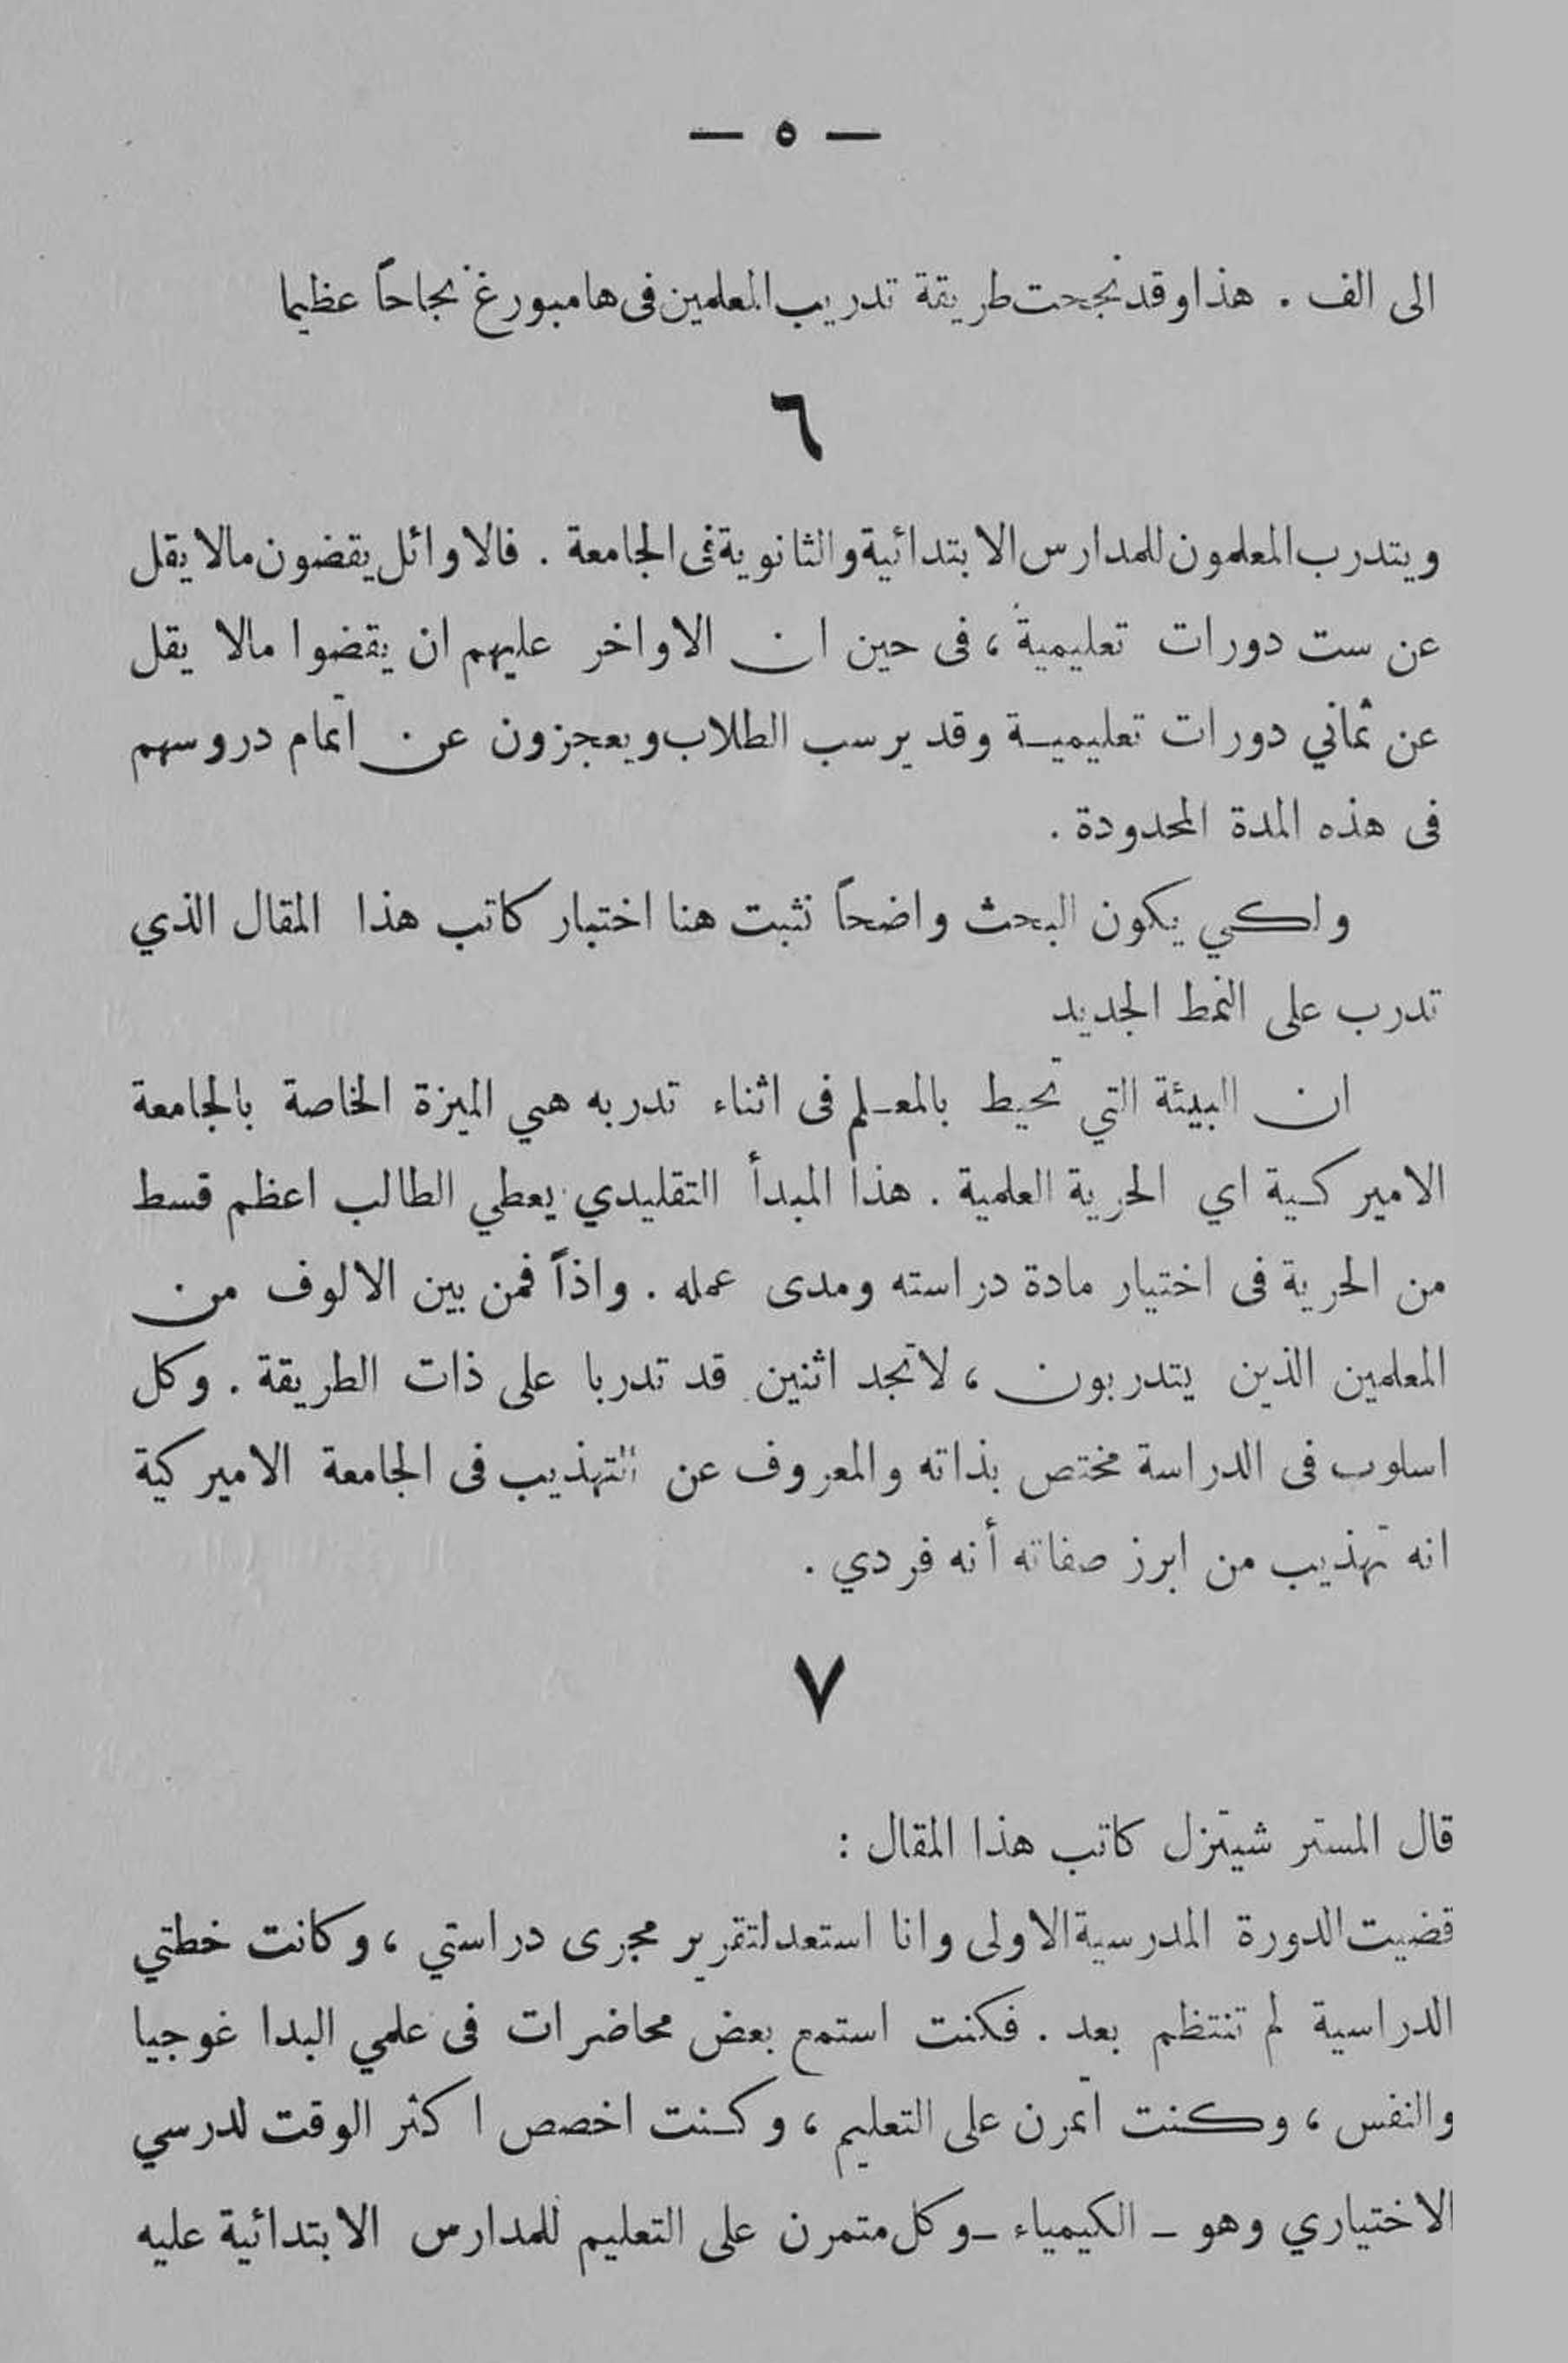 — ٥ —
الى الف . هذا وقد نجحت طريقة تدريب المعلمين فى هامبورغ نجاحاً عظيما
٦
ويتدرب المعلمون للمدارس الابتدائية والثانوية فى الجامعة . فالاوائل يقضون مالا يقل
عن ست دورات تعليمية ، فى حين ان الاواخر عليهم ان يقضوا مالا يقل
عن ثماني دورات تعليمية وقد يرسب الطلاب ويعجزون عن اتمام دروسهم
فى هذه المدة المحدودة .
ولكي يكون البحث واضحاً نثبت هنا اختبار كاتب هذا المقال الذي
تدرب على النمط الجديد
ان البيئة التي تحيط بالمعلم فى اثناء تدربه هي الميزة الخاصة بالجامعة
الاميركية اي الحرية العلمية . هذا المبدأ التقليدي يعطي الطالب اعظم قسط
من الحرية فى اختيار مادة دراسته ومدى عمله . واذاً فمن بين الالوف من
المعلمين الذين يتدربون ، لاتجد اثنين قد تدربا على ذات الطريقة . وكل
اسلوب فى الدراسة مختص بذاته والمعروف عن التهذيب فى الجامعة الاميركية
انه تهذيب من ابرز صفاته أنه فردي .
٧
قال المستر شيتزل كاتب هذا المقال :
قضيت الدورة المدرسية الاولى وانا استعد لتقرير مجرى دراستي ، وكانت خطتي
الدراسية لم تنتظم بعد . فكنت استمع بعض محاضرات فى علمي البداغوجيا
والنفس ، وكنت اتمرن على التعليم ، وكنت اخصص اكثر الوقت لدرسي
الاختياري وهو – الكيمياء – وكل متمرن على التعليم للمدارس الابتدائية عليه